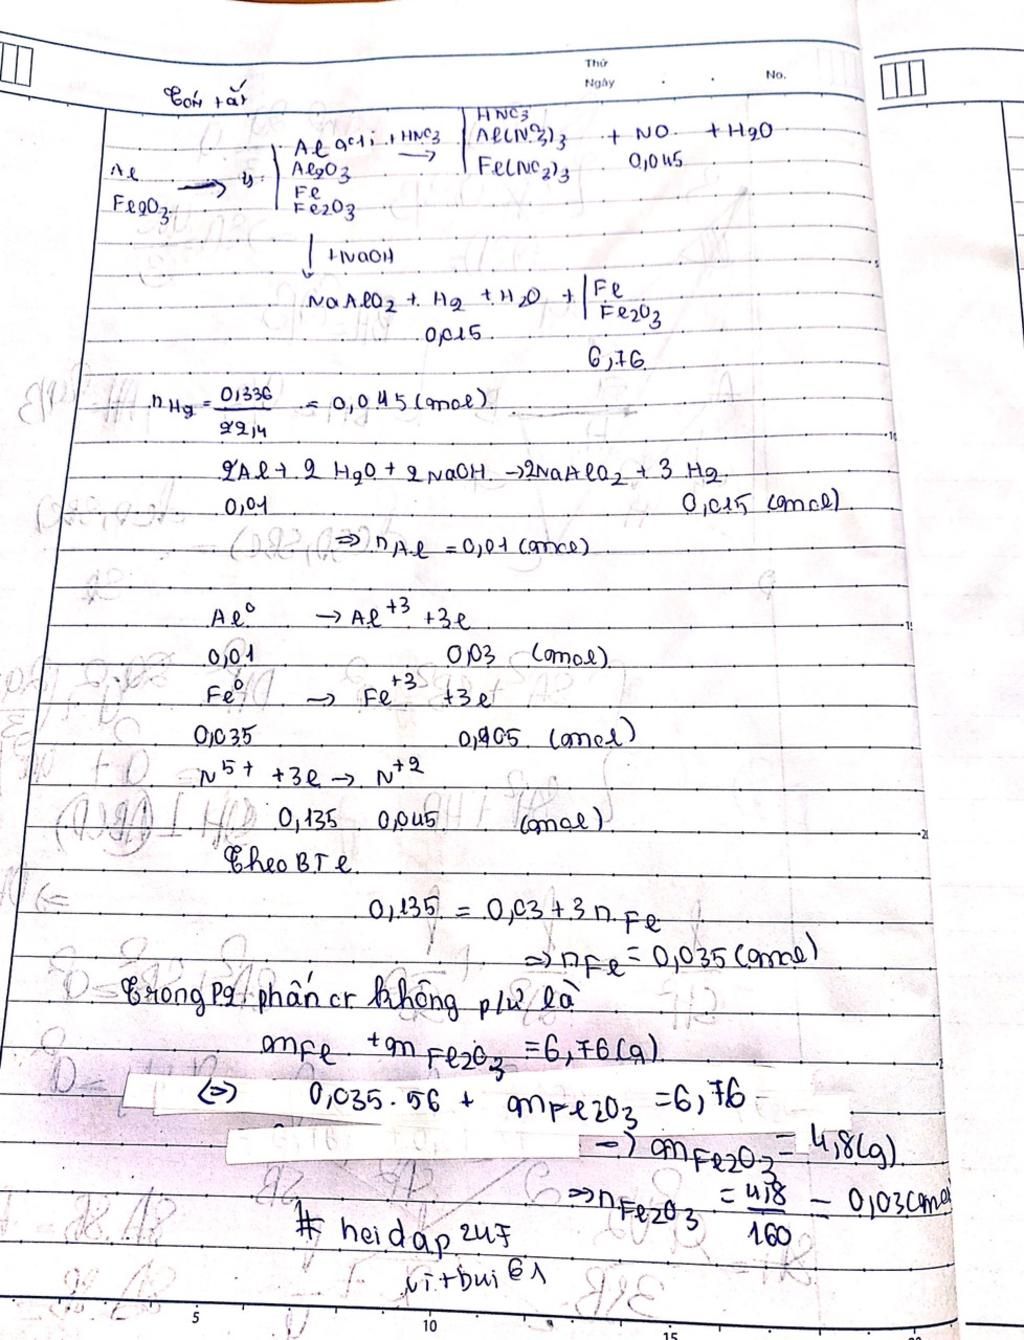 Thứ
Ngày
No.
Tóm tắt
Al
Fe2O3 → y: Al dư, Al2O3, Fe, Fe2O3 + HNO3 → HNO3, Al(NO3)3, Fe(NO3)3 + NO + H2O
0,045
↓ +NaOH
NaAlO2 + H2 + H2O + Fe
Fe2O3
0,015
6,76
nH2 = 0,336/22,4 = 0,015 (mol)
2Al + 2 H2O + 2 NaOH → 2NaAlO2 + 3 H2
0,01 0,015 (mol)
⇒ nAl = 0,01 (mol)
Al⁰ → Al⁺³ +3e
0,01 0,03 (mol)
Fe⁰ → Fe⁺³ +3e
0,035 0,105 (mol)
N⁵⁺ +3e → N⁺²
0,135 0,045 (mol)
Theo BTe
0,135 = 0,03 + 3 nFe
⇒ nFe = 0,035 (mol)
Trong P2: phần cr không p/ư là
mFe + mFe2O3 = 6,76 (g)
(⇒) 0,035.56 + mFe2O3 = 6,76
→ mFe2O3 = 4,8 (g)
⇒ nFe2O3 = 4,8/160 = 0,03 (mol
# hoidap247
vitbui61
5 10 15